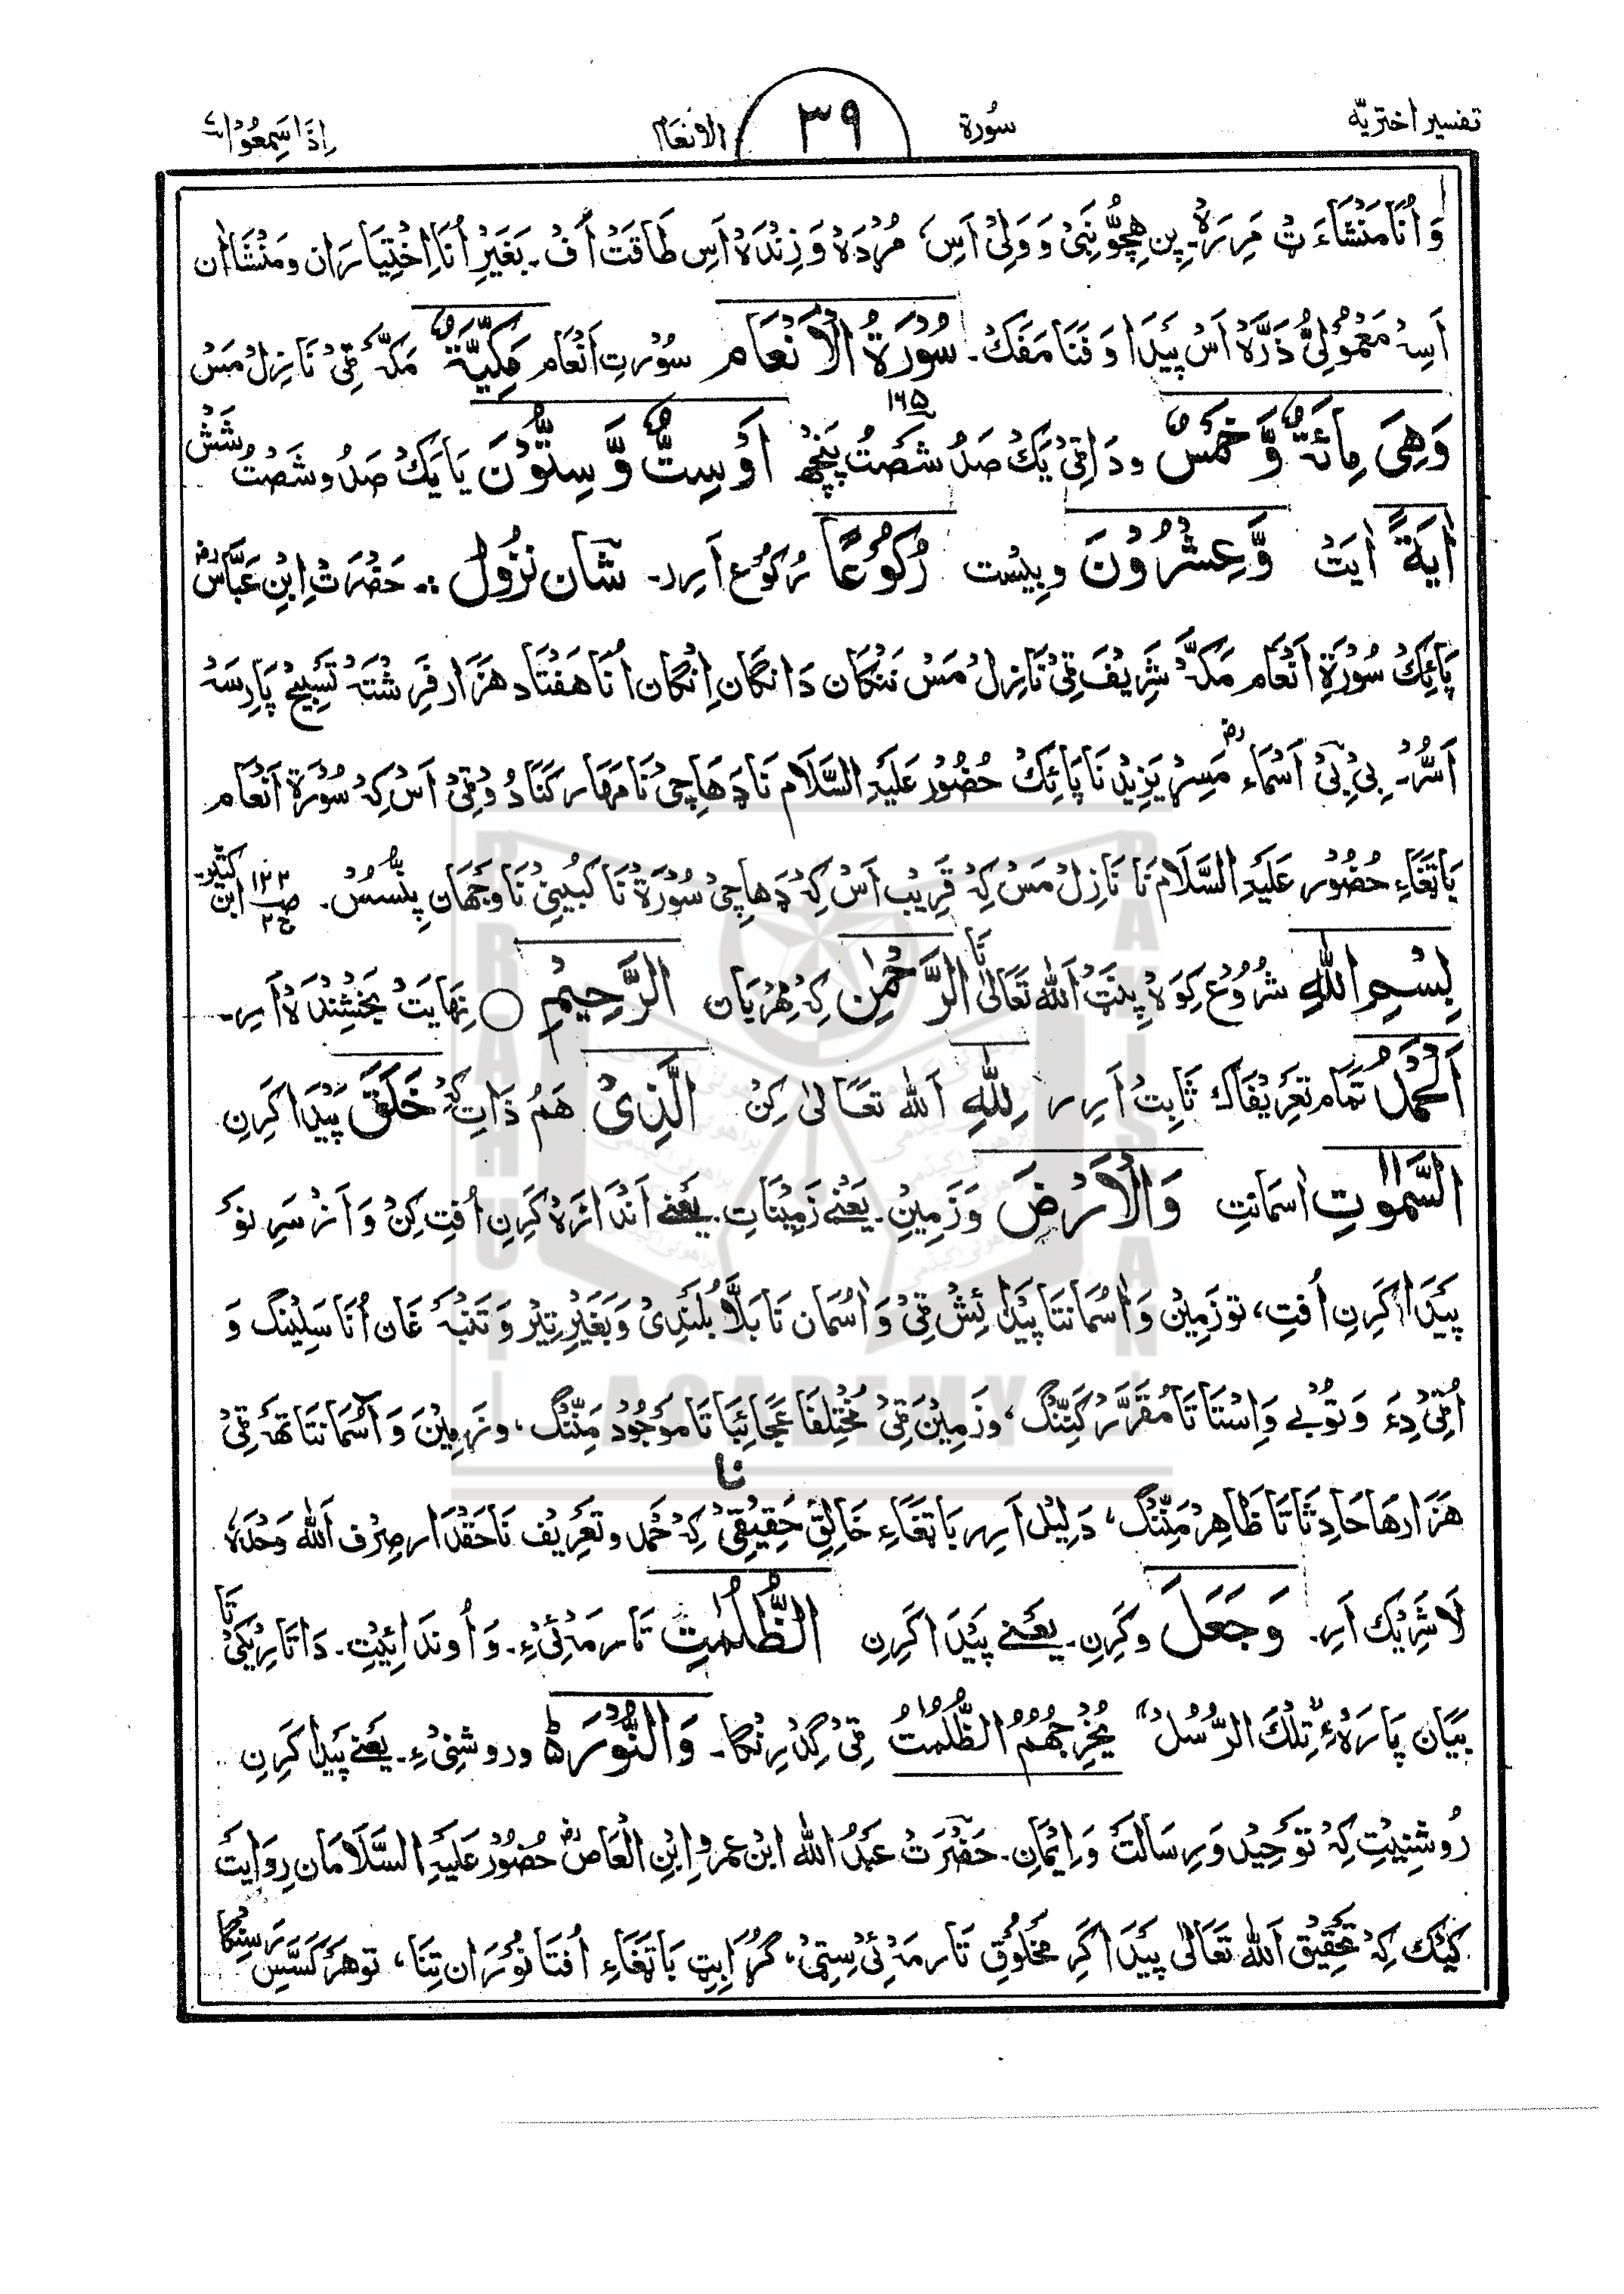 تفسیر اختریّه
سُورة
۳۹
الانعام
وَاِذَا سَمِعُوْا
وَ اُنَا مَنْشَاءَ تْ مَرِرَهْ۔ پِن هِچُّو نَبِیْ وَ وَلِیْ اَسِ، مُرْدَهْ وَ زِنْدَهْ اَسِ طَاقَتْ اَفْ۔ بَغَیْرِ اُنَا اِخْتِیَارَان و مَنْشَاان
اَسِہْ مَعْمُوْلِیُّ ذَرَّہْ اَسْ پَیْدَا وَ فَنَا مَفَکْ۔ سُوْرَةُ الْاَنْعَام سُوْرتِ اَنْعَام مَکِّیَّةٌ مَکّہَ ٹِیْ نَازِلْ مَسْ
وَهِیَ مِائَةٌ وَّخَمْسٌ ١٦٥ و دَا ٹِیْ یَکْ صَدْ شَصْتْ پَنْچْ اَوْ سِتٌّ وَّ سِتُّوْنَ یَا یَکْ صَدْ و شَصْتْ شَشْ
اٰیَةً اٰیَتْ وَّعِشْرُوْنَ و بِیْسْت رُکُوْعًا رُکُوْع اَرِر۔ شَانِ نزُوْل :۔ حَضْرَتْ اِبْنِ عَبَّاسؓ
پَائِکْ سُوْرَةِ اَنْعَام مَکَّہْ شَرِیْفَ ٹِیْ نَازِلْ مَسْ نَنْکَان دَانگَان اِنگَان اُنَا هَفْتَاد هَزَار فَرِشْتَہْ تَسْبِیْح پَارِسَہْ
اَسُّرْ۔ بِیْ بِیْ اَسْمَاءؓ مَسِڑْ یَزِیْدْ نَا پَائِکْ حُضُوْر عَلَیْہِ السَّلَام نَا ڈَهَاچِیْ نَا مَهَار کَنَا دُوْ ٹِیْ اَسْ کِہْ سُوْرَةِ اَنْعَام
بَاتَغَاءِ حُضُوْر عَلَیْہِ السَّلَام نَا نَازِلْ مَسْ کِہْ قَرِیْب اَسْ کِہْ ڈَهَاچِیْ سُوْرَةْ نَا کُبِیْنِیْ نَا وَجْهَان پِنِّسُسْ۔ ابن کثیرؒ ص ١٢٢ ج ۲
بِسْمِ اللّٰهِ شُرُوْع کِیْوَہْ پِنَتْ اَللّٰہ تَعَالٰی نَا الرَّحْمٰنِ کِہْ مِهْرَبَان الرَّحِیْمِ ○ نِهَایَتْ بَخْشِنْدَہْ اَرِ۔
اَلْحَمْدُ تَمَام تَعْرِیْفَاكْ ثَابِتْ اَرِر لِلّٰهِ اَللّٰه تَعَالٰی کِنْ الَّذِیْ هَمُ ذَاتِ کِہْ خَلَقَ پَیْدَا کَرِنِ
السَّمٰوٰتِ اٰسْمَانتِ وَالْاَرْضَ وَ زَمِیْنِ۔ یَعْنِے زَمِیْنَاتِ۔ یَعْنِے اَنْدَازَہْ کَرِنِ اُفْتِ کِنْ وَ اَزْ سَرِ نَوْ
پَیْدَا کَرِنِ اُفتِ، تو زَمِیْن وَ اٰسْمَانتَا پَیْدَائِشْ ٹِیْ وَ اٰسْمَان نَا بَلَّا بُلَنْدِیْ وَ بَغَیْرِ تِیْر وَ تَنْبَہ غَان اُنَا سَلِیْنگ وَ
اُٹِیْ دِءَ وَ تُوْبے وَ اِسْتَا تَا مُقَرَّر کَنِّنگ، و زَمِیْن ٹِیْ مُخْتِلفَا عَجَائِبَا تَا مَوْجُوْد مَنِّنگ، و زَمِیْنَ وَ اٰسْمَانتَا تَہَ ٹِیْ
هَزَارهَا حَادِثَا تَا ظَاهِرْ مَنِّنگ، دَلِیْل اَرِر بَاتَغَاءِ خَالِقِ حَقِیْقِیْ نا کِہْ حَمْد و تَعْرِیْف نَا حَقْدَار صِرْف اَللّٰه وَحْدَہٗ
لَاشَرِیْكَ اَرِ۔ وَجَعَلَ وکَرِنِ۔ یَعْنِے پَیْدَا کَرِنِ الظُّلُمٰتِ تَارمَہْئِیْءِ۔ وَ اُوندَائِیْتِ۔ دَا تَارِیْکِیْ تَا
بَیَان پَارَہْ ءِ تِلْكَ الرُّسُلُ یُخْرِجُهُمْ الظُّلُمٰتُ ٹِیْ گِدْرِنْگَا۔ وَالنُّوْرَ ۵ و روشنِیْءِ۔ یَعْنِے پَیْدَا کَرِنِ
رُوشَنِیْتِ کِہْ تَوْحِیْد وَ رِسَالَتْ وَ اِیْمَانِ۔ حَضْرَتْ عَبْدُ اللّٰه ابْن عمرو اِبْنِ الْعَاصؓ حُضُوْر عَلَیْہِ السَّلَامَان رِوَایَتْ
کَیْكْ کِہْ تَحْقِیْق اَللّٰه تَعَالٰی پَیْدَا کَرِ مَخْلُوْقِ تَارمَہْئِیْ سِتِیْ، گُڑَا بِتْ بَاتَغَاءِ اُفتَا نُوْرَان تِنَا، تو هَرْکَسَّسِ رَسِنْگَا